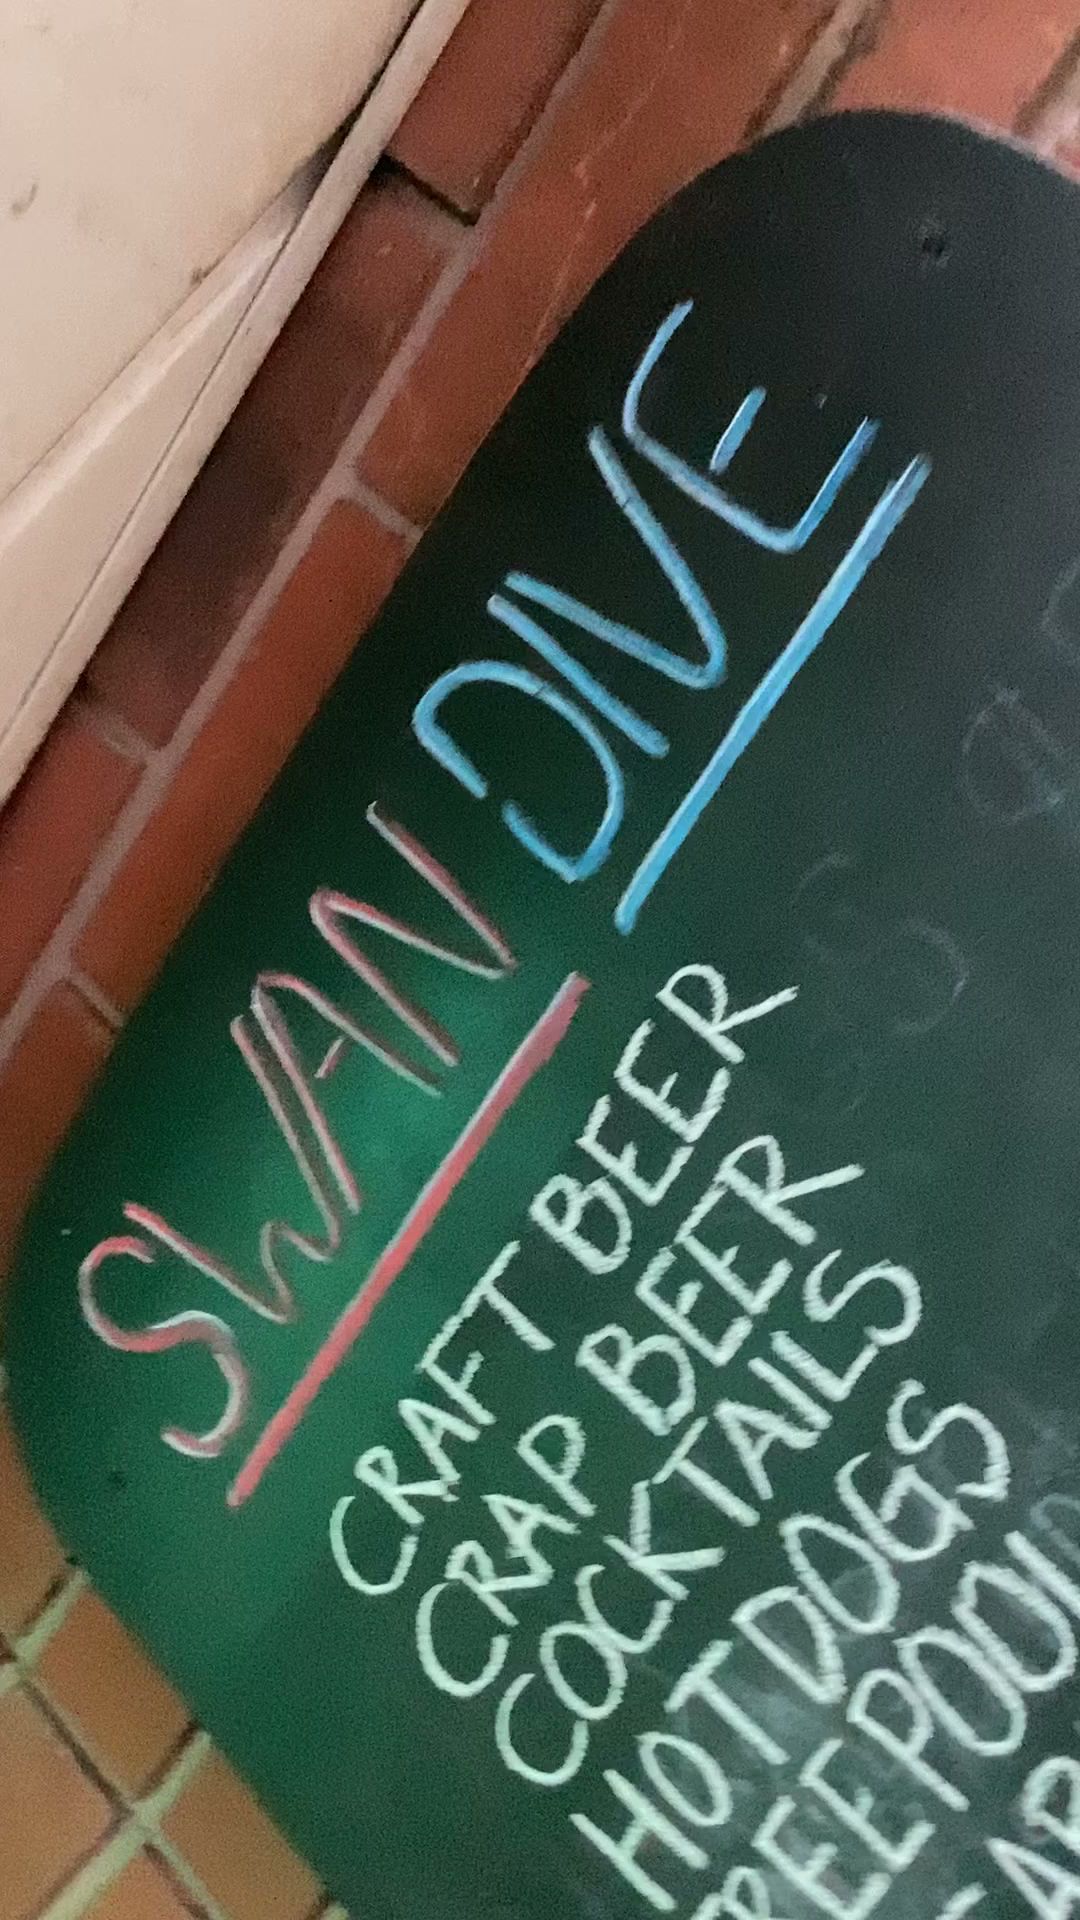 SWAN DIVE
CRAFT BEER
CRAP BEER
COCKTAILS
HOT DOGS